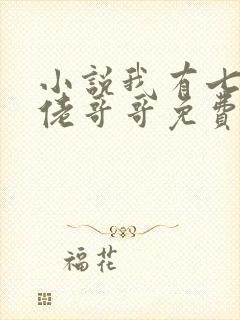 小說我有七
佬哥哥免費
福花